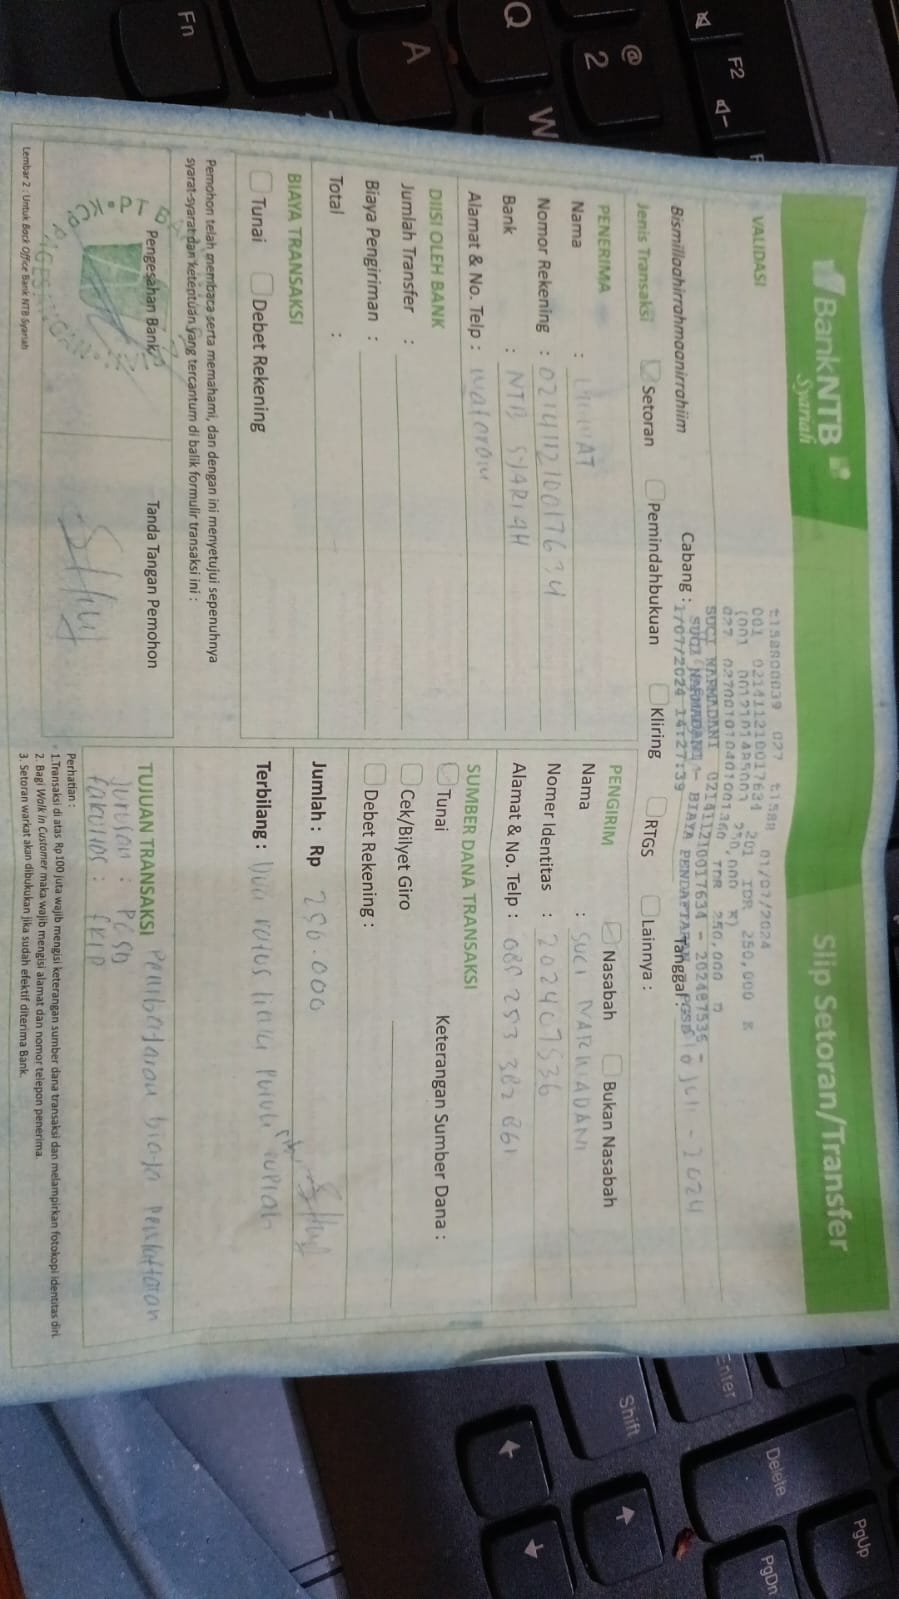 BankNTB
Syariah
Slip Setoran/Transfer
VALIDASI
t1588 01/07/2024
001 021411210017634 201 IDR 250,000 K
SUCI NARMADANI
Bismillaahirrahmaanirrahiim
Cabang :
1/07/2024 14:27:39
Tanggal :
Juli - 2024
Jenis Transaksi
Setoran
Pemindahbukuan
Kliring
RTGS
Lainnya :
PENERIMA
Nama :
Nomor Rekening : 021411210017634
Bank : NTB SYARIAH
Alamat & No. Telp : Mataram
PENGIRIM
Nasabah
Bukan Nasabah
Nama : SUCI NARMADANI
Nomer Identitas :
Alamat & No. Telp :
DIISI OLEH BANK
Jumlah Transfer :
Biaya Pengiriman :
Total :
SUMBER DANA TRANSAKSI
Tunai
Keterangan Sumber Dana :
Cek/Bilyet Giro
Debet Rekening :
BIAYA TRANSAKSI
Tunai
Debet Rekening
Jumlah : Rp 250.000
Terbilang : Dua ratus lima puluh ribu rupiah
Pemohon telah membaca serta memahami, dan dengan ini menyetujui sepenuhnya
syarat-syarat dan ketentuan yang tercantum di balik formulir transaksi ini :
Pengesahan Bank
Tanda Tangan Pemohon
TUJUAN TRANSAKSI
Pembayaran biaya pendaftaran
Jurusan : PGSD
Fakultas : FKIP
Perhatian :
1.Transaksi di atas Rp 100 juta wajib mengisi keterangan sumber dana transaksi dan melampirkan fotokopi identitas diri.
2. Bagi Walk in Customer maka wajib mengisi alamat dan nomor telepon penerima.
3. Setoran warkat akan dibukukan jika sudah efektif diterima Bank.
Lembar 2 : Untuk Back Office Bank NTB Syariah
Fn
A
Q
W
@
2
F2
Enter
Shift
Delete
PgUp
PgDn